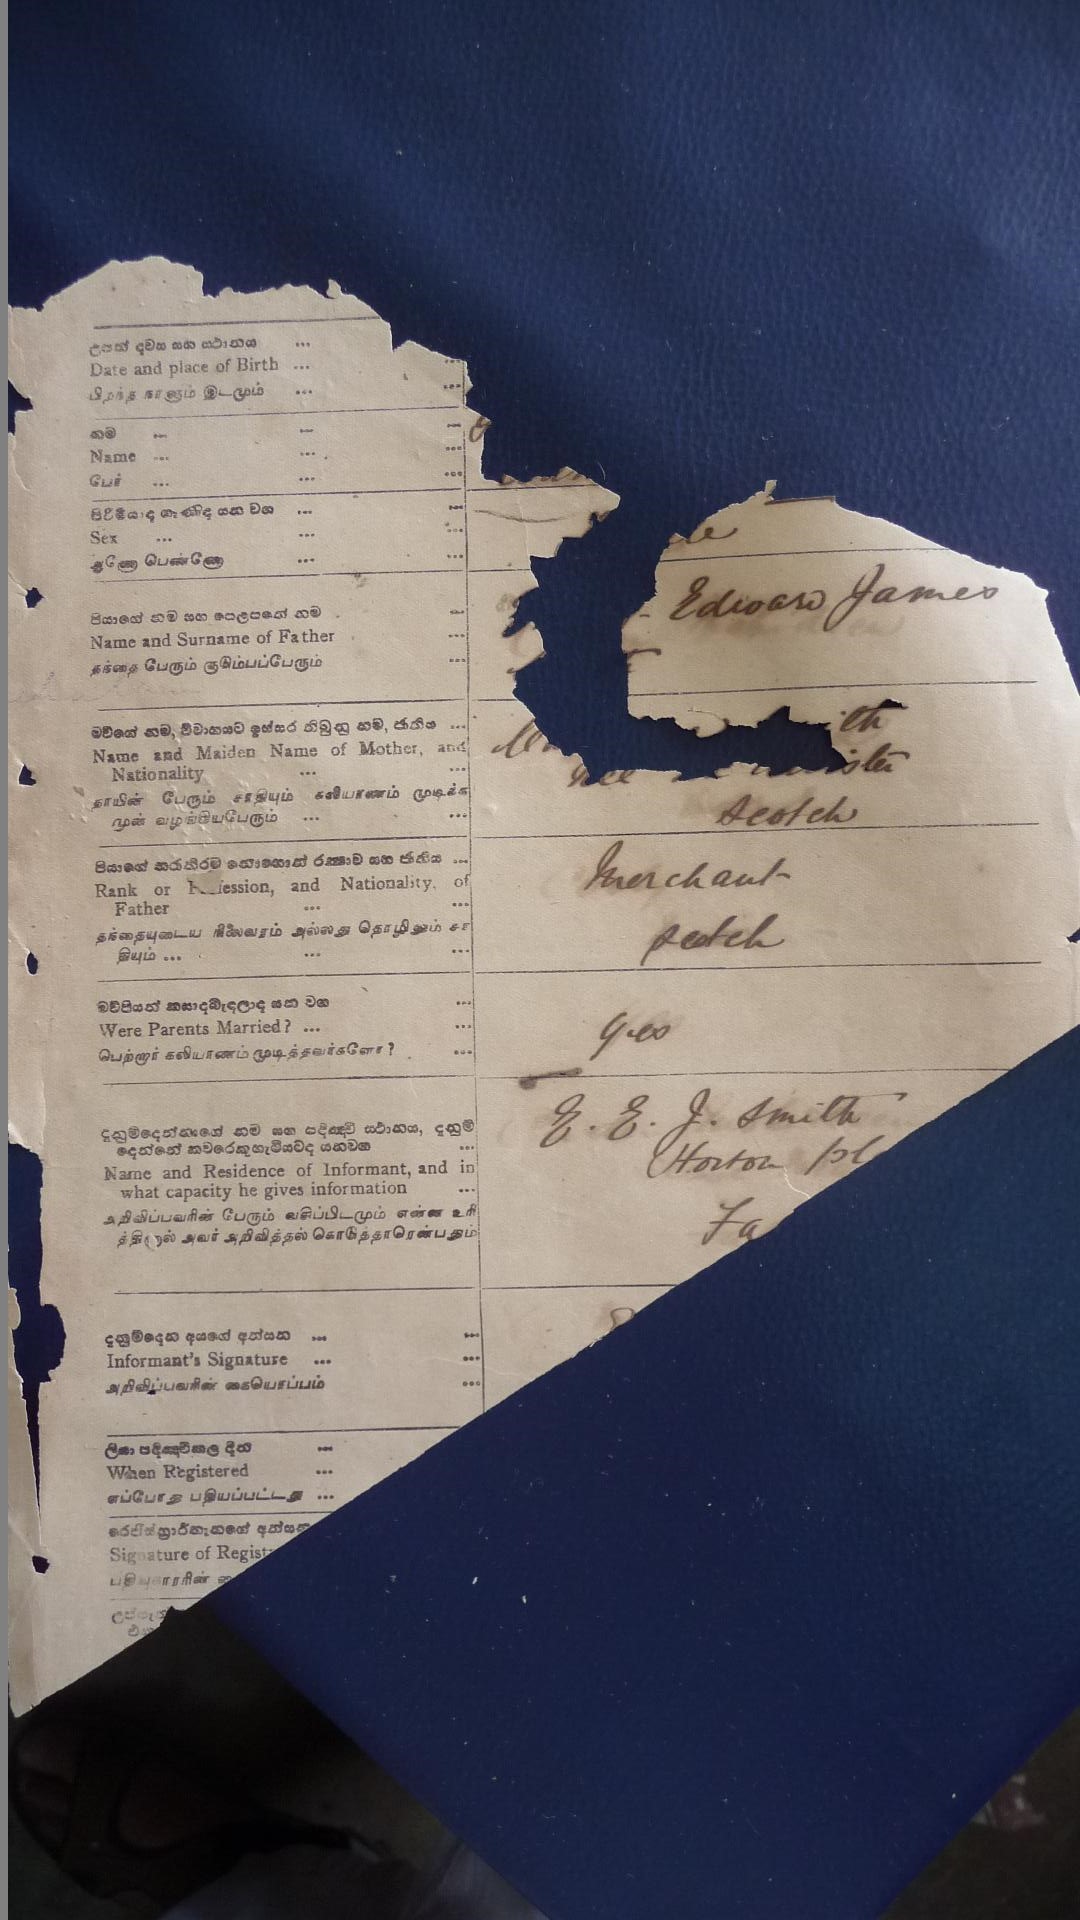 උපන් දවස සහ ස්ථානය ...
Date and place of Birth ... ...
பிறந்த நாளும் இடமும் ... ...
නම ... ... ...
Name ... ... ...
பேர் ... ... ...
පිරිමියාද ගෑණිද යන වග ... ...
Sex ... ... ...
ஆணோ பெண்ணோ ... ...
පියාගේ නම සහ පෙලපතේ නම ...
Edward James
Name and Surname of Father ...
தந்தை பேரும் குடும்பப்பேரும் ...
මව්ගේ නම, විවාහයට ඉස්සර තිබුනු නම, ජාතිය ...
Name and Maiden Name of Mother, and
Nationality ... ...
nee
தாயின் பேரும் சாதியும் கலியாணம் முடிக்க
முன் வழங்கியபேரும் ... ...
Scotch
පියාගේ තරාතිරම නොහොත් රක්ෂාව සහ ජාතිය ...
Merchant
Rank or ession, and Nationality, of
Father ... ...
தந்தையுடைய நிலைவரம் அல்லது தொழிலும் சா
தியும் ... ... ...
Scotch
මව්පියන් කසාදබැඳලාද යන වග ...
Were Parents Married? ... ...
Yes
பெற்றார் கலியாணம் முடித்தவர்களோ? ...
E. E. J. Smith
දැනුම්දෙන්නාගේ නම සහ පදිංචි ස්ථානය, දැනුම්
දෙන්නේ කවරෙකුහැටියටද යනවග ...
Horton Pl
Name and Residence of Informant, and in
what capacity he gives information ...
அறிவிப்பவரின் பேரும் வசிப்பிடமும் என்ன உரி
Fa
த்தினால் அவர் அறிவித்தல் கொடுத்தாரென்பதும்
දැනුම්දෙන අයගේ අත්සන ... ...
Informant's Signature ... ...
அறிவிப்பவரின் கையொப்பம் ...
ලියා පදිංචිකල දින ...
When Registered ...
எப்போது பதியப்பட்டது ...
රෙජිස්ත්‍රාර්තැනගේ අත්සන
Signature of Regist
பதிவுகாரரின்